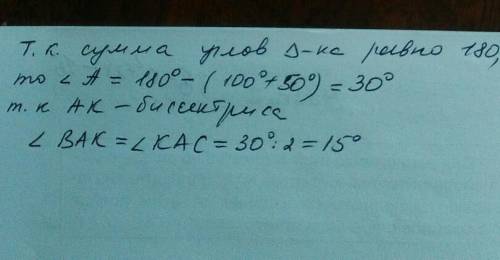 Т.к. сумма углов Δ-ка равно 180,
то ∠ A = 180° - (100° + 50°) = 30°
т.к АК - биссектриса
∠ ВАК = ∠ КАС = 30° : 2 = 15°